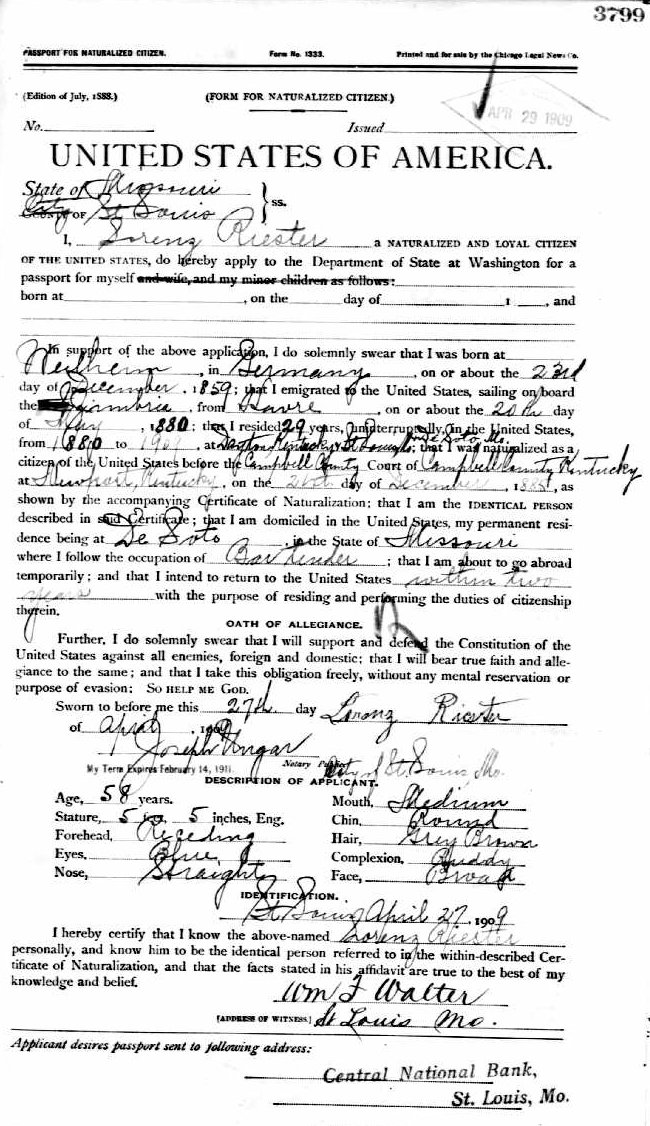 3799
PASSPORT FOR NATURALIZED CITIZEN. Form No. 1333. Printed and for sale by the Chicago Legal News Co.
(Edition of July, 1888.) (FORM FOR NATURALIZED CITIZEN.)
APR 29 1909
No. Issued
UNITED STATES OF AMERICA.
State of Missouri
City OF St Louis } ss.
I, Lorenz Riester a NATURALIZED AND LOYAL CITIZEN
OF THE UNITED STATES, do hereby apply to the Department of State at Washington for a
passport for myself and wife, and my minor children as follows:
born at , on the day of 1 , and
In support of the above application, I do solemnly swear that I was born at
Weilheim, in Germany, on or about the 23rd
day of December, 1859; that I emigrated to the United States, sailing on board
the Cimbria, from Havre, on or about the 20th day
of May, 1880; that I resided 29 years, uninterruptedly, in the United States,
from 1880 to 1909, at Dayton Kentucky & St Louis & De Soto, Mo; that I was naturalized as a
citizen of the United States before the Campbell County Court of Campbell County Kentucky
at Newport, Kentucky, on the day of December, 1885, as
shown by the accompanying Certificate of Naturalization; that I am the IDENTICAL PERSON
described in said Certificate; that I am domiciled in the United States, my permanent resi-
dence being at De Soto, in the State of Missouri
where I follow the occupation of Bar tender; that I am about to go abroad
temporarily; and that I intend to return to the United States within two
years with the purpose of residing and performing the duties of citizenship
therein.
OATH OF ALLEGIANCE.
Further, I do solemnly swear that I will support and defend the Constitution of the
United States against all enemies, foreign and domestic; that I will bear true faith and alle-
giance to the same; and that I take this obligation freely, without any mental reservation or
purpose of evasion: SO HELP ME GOD.
Sworn to before me this 27th day Lorenz Riester
of April, 1909
Joseph Ungar
Notary Public
My Term Expires February 14, 1911. City of St. Louis, Mo.
DESCRIPTION OF APPLICANT.
Age, 58 years. Mouth, Medium
Stature, 5 feet, 5 inches, Eng. Chin, Round
Forehead, Receding Hair, Grey Brown
Eyes, Blue Complexion, Ruddy
Nose, Straight Face, Broad
IDENTIFICATION.
St Louis April 27, 1909
I hereby certify that I know the above-named Lorenz Riester
personally, and know him to be the identical person referred to in the within-described Cer-
tificate of Naturalization, and that the facts stated in his affidavit are true to the best of my
knowledge and belief.
Wm F Walter
[ADDRESS OF WITNESS] St Louis Mo.
Applicant desires passport sent to following address:
Central National Bank,
St. Louis, Mo.